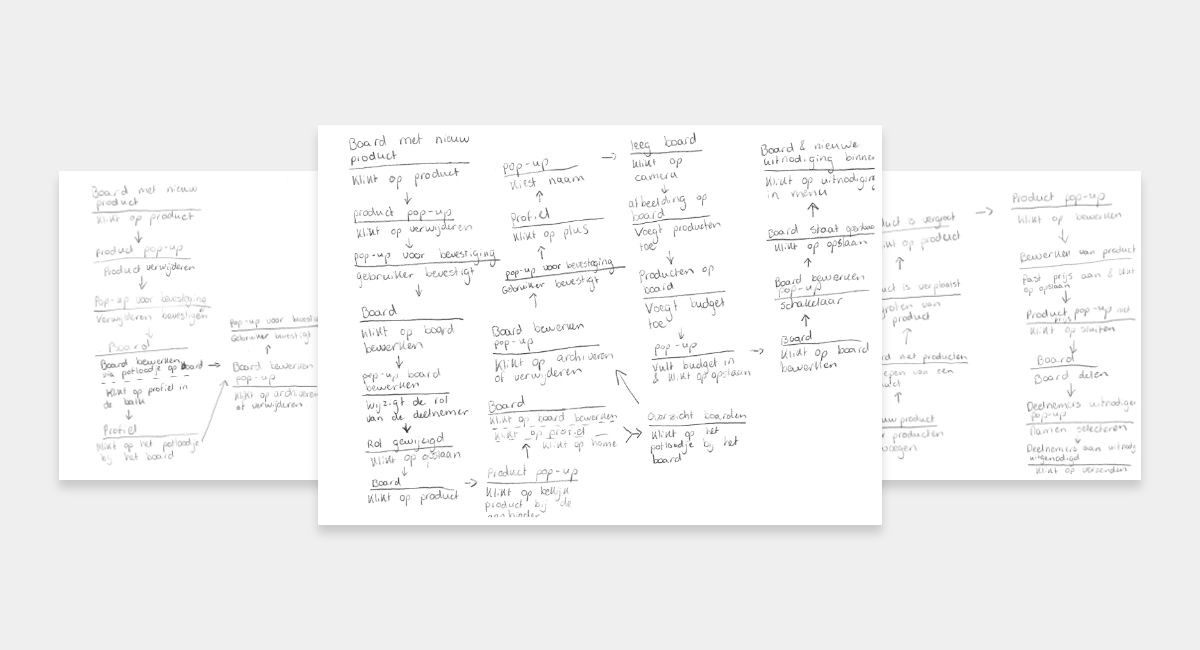 Board met nieuw
product
Klikt op product
product pop-up
Product verwijderen
Pop-up voor bevestiging
Verwijderen bevestigen
Board
Board bewerken
via potloodje op board
Klikt op profiel in
de balk
Profiel
Klikt op het potloodje
bij het board
Pop-up voor
Gebruiker bevestigt
Board bewerken
pop-up
Klikt op archiveren
of verwijderen
Board met nieuw
product
Klikt op product
product pop-up
Klikt op verwijderen
pop-up voor bevestiging
gebruiker bevestigt
Board
Klikt op board
bewerken
pop-up board
bewerken
Wijzigt de rol
van de deelnemer
Rol gewijzigd
Klikt op opslaan
Board
Klikt op product
Product pop-up
Klikt op bekijk
product bij de
Board
Klikt op board bewerken
Klikt op profiel
Klikt op home
Board bewerken
pop-up
Klikt op archiveren
of verwijderen
pop-up voor bevestiging
Gebruiker bevestigt
Profiel
Klikt op plus
pop-up
Kiest naam
leeg board
Klikt op
camera
afbeelding op
board
Voegt producten
toe
Producten op
board
Voegt budget
toe
pop-up
Vult budget in
& klikt op opslaan
Overzicht boarden
Klikt op het
potloodje bij het
board
Board & nieuwe
uitnodiging
Klikt op uitnodiging
in menu
Board staat
Klikt op opslaan
Board bewerken
pop-up
Schakelaar
Board
Klikt op board
bewerken
is vergroot
op product
is verplaatst
van
product
met producten
van een
product
producten
Product pop-up
Klikt op bewerken
Bewerken van product
Past prijs aan & klikt
op opslaan
Product pop-up met
prijs
Klikt op sluiten
Board
Board delen
Deelnemers
pop-up
Namen selecteren
Deelnemers aan
uitgenodigd
Klikt op verzenden